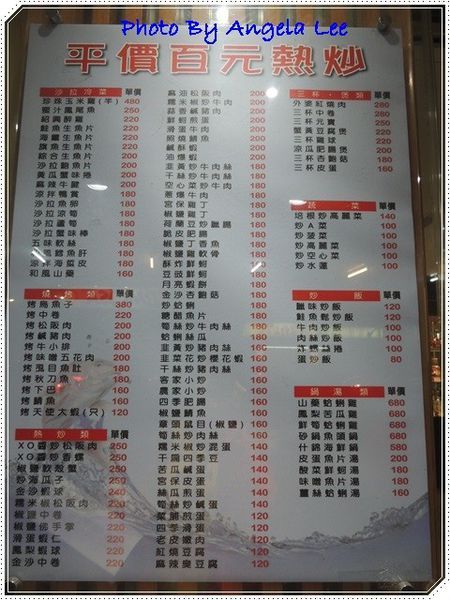 Photo By Angela Lee
平價百元熱炒
沙拉冷菜 單價
珍味玉米雞(半) 480
蜜汁鳳尾魚 250
紹興醉雞 220
鮭魚生魚片 220
海鱺生魚片 220
旗魚生魚片 220
綜合生魚片 220
沙拉鮑魚片 220
黃瓜蟹味捲 200
麻辣牛腱 200
涼拌鴨賞 180
沙拉魚卵 180
沙拉涼筍 180
沙拉蘆筍 180
沙拉蟹味棒 180
五味軟絲 180
180
涼拌海蜇皮 180
和風山藥 160
燒烤類 單價
烤烏魚子 380
烤中卷 220
烤松阪肉 200
烤鹹豬肉 200
烤牛小排 200
烤味噌五花肉 200
烤虱目魚肚 180
烤秋刀魚 180
烤下巴 180
烤鯖魚 160
烤天使大蝦(只) 120
熱炒類 單價
XO醬炒松阪肉 250
XO醬炒香螺 250
椒鹽軟殼蟹 250
炒海瓜子 250
金沙蝦球 240
糯米椒松阪肉 220
椒鹽中卷 200
200
滑蛋蝦仁 200
鳳梨蝦球 200
金沙中卷 200
麻油松阪肉 200
糯米椒炒牛肉 200
蒜香鹹豬肉 200
鮮蚵煎蛋 200
滑蛋牛肉 200
照燒鯖魚 200
鹹酥蝦 200
油爆蝦 200
韭黃炒牛肉絲 180
干絲炒牛肉絲 180
空心菜炒牛肉 180
蔥爆牛肉 180
宮保雞丁 180
椒鹽雞丁 180
荷蘭豆炒臘腸 180
脆皮肥腸 180
椒鹽丁香魚 180
椒鹽雞軟骨 180
酥炸鮮蚵 180
豆豉鮮蚵 180
月亮蝦餅 180
金沙杏鮑菇 180
炒蛤蜊 180
糖醋魚片 180
筍絲炒牛肉絲 160
蛤蜊絲瓜 160
韭黃炒豬肉絲 160
韭菜花炒櫻花蝦 160
干絲炒豬肉絲 160
客家小炒 160
農家小炒 160
四季肥腸 160
椒鹽鯖魚 160
章頭鼠目(椒鹽) 160
筍絲炒肉絲 160
糯米椒炒混蛋 140
干扁四季豆 140
苦瓜鹹蛋 140
宮保皮蛋 140
絲瓜煎蛋 140
筍絲炒鹹蛋 140
菜脯煎蛋 120
四季滑蛋 120
老皮嫩肉 120
紅燒豆腐 120
麻辣臭豆腐 120
三杯‧煲類 單價
外婆紅燒肉 280
三杯中卷 280
三杯元寶 250
蟹黃豆腐煲 200
三杯雞球 220
涼瓜肥腸煲 200
三杯杏鮑菇 180
三杯皮蛋 160
蔬菜 單價
培根炒高麗菜 140
炒A菜 100
炒菠菜 100
炒高麗菜 100
炒空心菜 100
炒水蓮 100
炒飯 單價
臘味炒飯 120
鮭魚鬆炒飯 120
牛肉炒飯 100
肉絲炒飯 100
炸銀絲捲 100
蛋炒飯 80
鍋湯類 單價
山藥蛤蜊雞 680
鳳梨苦瓜雞 680
鮮筍蛤蜊雞 680
砂鍋魚頭鍋 580
什錦海鮮鍋 580
皮蛋魚片湯 200
酸菜鮮蚵湯 180
味噌魚片湯 180
薑絲蛤蜊湯 160